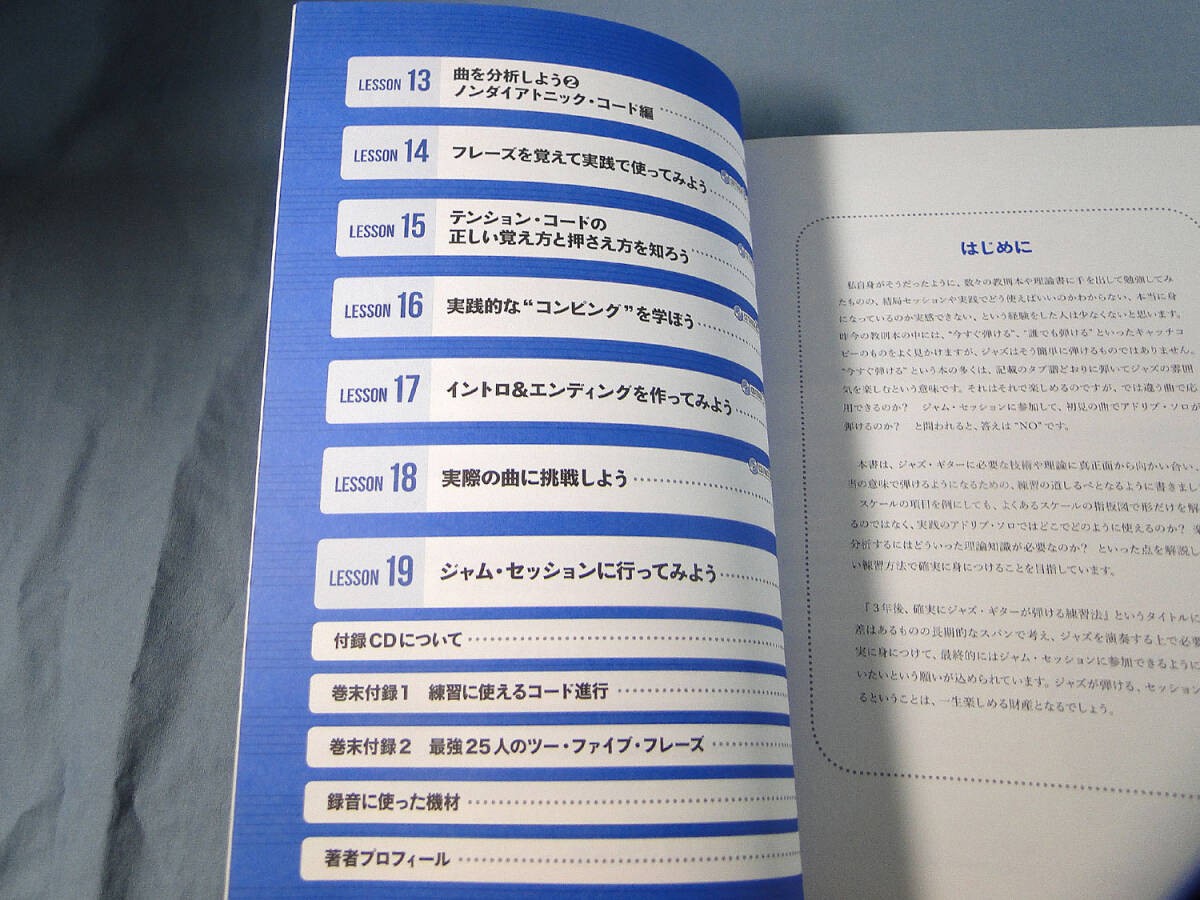 LESSON 13
曲を分析しよう❷
ノンダイアトニック・コード編
LESSON 14
フレーズを覚えて実践で使ってみよう
LESSON 15
テンション・コードの
正しい覚え方と押さえ方を知ろう
LESSON 16
実践的な“コンピング”を学ぼう
LESSON 17
イントロ&エンディングを作ってみよう
LESSON 18
実際の曲に挑戦しよう
LESSON 19
ジャム・セッションに行ってみよう
付録CDについて
巻末付録1 練習に使えるコード進行
巻末付録2 最強25人のツー・ファイブ・フレーズ
録音に使った機材
著者プロフィール
はじめに
私自身がそうだったように、数々の教則本や理論書に手を出して勉強してみ
たものの、結局セッションや実践でどう使えばいいのかわからない、本当に身
になっているのか実感できない、という経験をした人は少なくないと思います。
昨今の教則本の中には、“今すぐ弾ける”、“誰でも弾ける”といったキャッチコ
ピーのものをよく見かけますが、ジャズはそう簡単に弾けるものではありません。
“今すぐ弾ける”という本の多くは、記載のタブ譜どおりに弾いてジャズの雰囲
気を楽しむという意味です。それはそれで楽しめるのですが、では違う曲で応
用できるのか? ジャム・セッションに参加して、初見の曲でアドリブ・ソロが
弾けるのか? と問われると、答えは“NO”です。
本書は、ジャズ・ギターに必要な技術や理論に真正面から向かい合い、
当の意味で弾けるようになるための、練習の道しるべとなるように書きまし
スケールの項目を例にしても、よくあるスケールの指板図で形だけを解
るのではなく、実践のアドリブ・ソロではどこでどのように使えるのか?
分析するにはどういった理論知識が必要なのか? といった点を解説し
い練習方法で確実に身につけることを目指しています。
『3年後、確実にジャズ・ギターが弾ける練習法』というタイトルに
差はあるものの長期的なスパンで考え、ジャズを演奏する上で必要
実に身につけて、最終的にはジャム・セッションに参加できるように
いたいという願いが込められています。ジャズが弾ける、セッション
るということは、一生楽しめる財産となるでしょう。